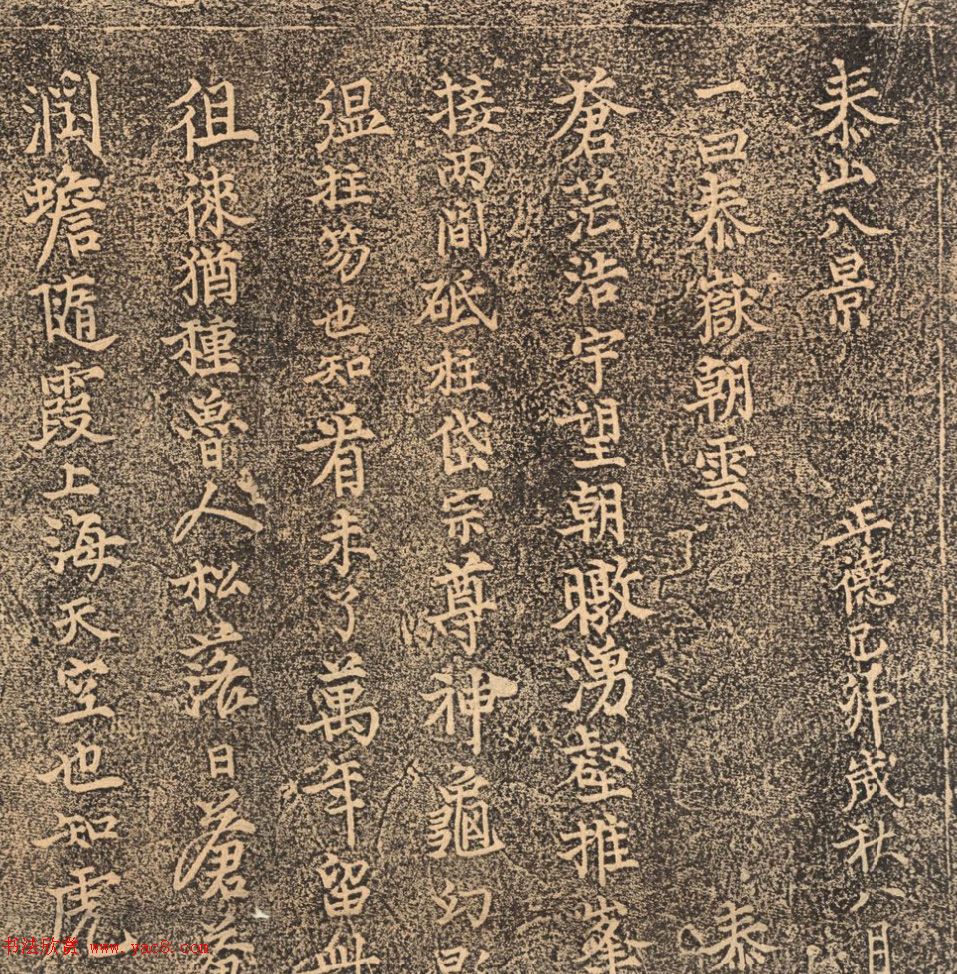 泰山八景 正德己卯歲秋八月
一曰泰嶽朝雲 泰
蒼茫浩宇望朝暾湧壑推峯
接两間砥柱岱宗尊神龜幻
缊拄笏也知看未了萬年留此
徂徠猶種魯人松落日蒼
潤蟾随霞上海天空也知虎
书法欣赏 www.yac8.com